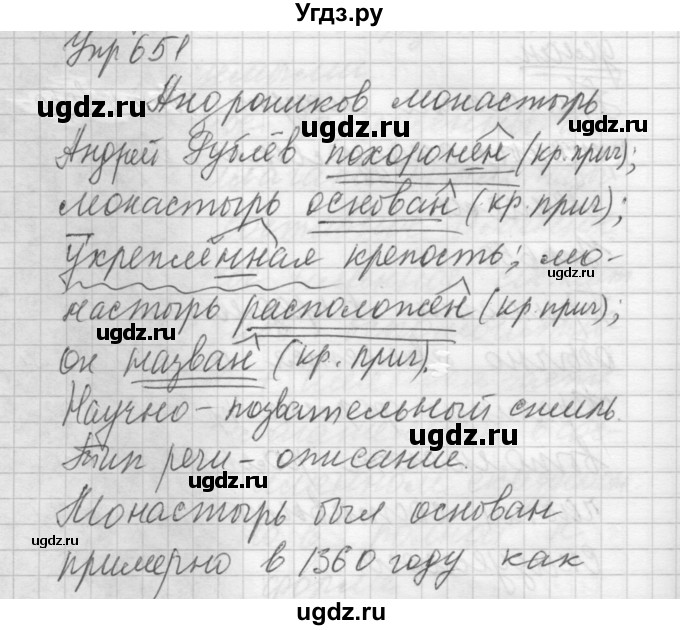 Угдз.ру
Упр 651
ugdz.ru
Андроников монастырь
ugdz.ru
ugdz.ru
Андрей Рублёв похоронен (кр.прич);
монастырь основан (кр.прич);
ugdz.ru
укреплённая крепость; мо-
ugdz.ru
настырь расположен (кр.прич);
ugdz.ru
он назван (кр.прич).
Научно-позвательный стиль.
ugdz.ru
Тип речи - описание.
ugdz.ru
Монастырь был основан
ugdz.ru
примерно в 1360 году как
ugdz.ru